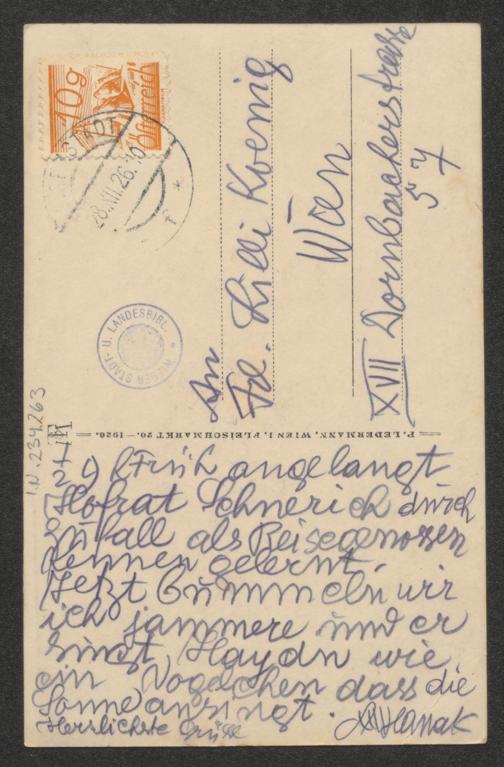 10g
Österreich
STADT
28.XII.26
WIENER STADT- U. LANDESBIBL.
An
Frl. Lilli Koenig
Wien
XVII Dornbacherstrasse
57
P. LEDERMANN, WIEN I, FLEISCHMARKT 20. — 1926.
I.N. 234263
Früh angelangt
Hofrat Schnerich durch
Zufall als Reisegenossen
kennen gelernt.
Jetzt bummeln wir
ich jammere und er
singt Haydn wie
ein Vogelchen dass die
Sonne ansingt.
Herrlichste Grüße
Hanak